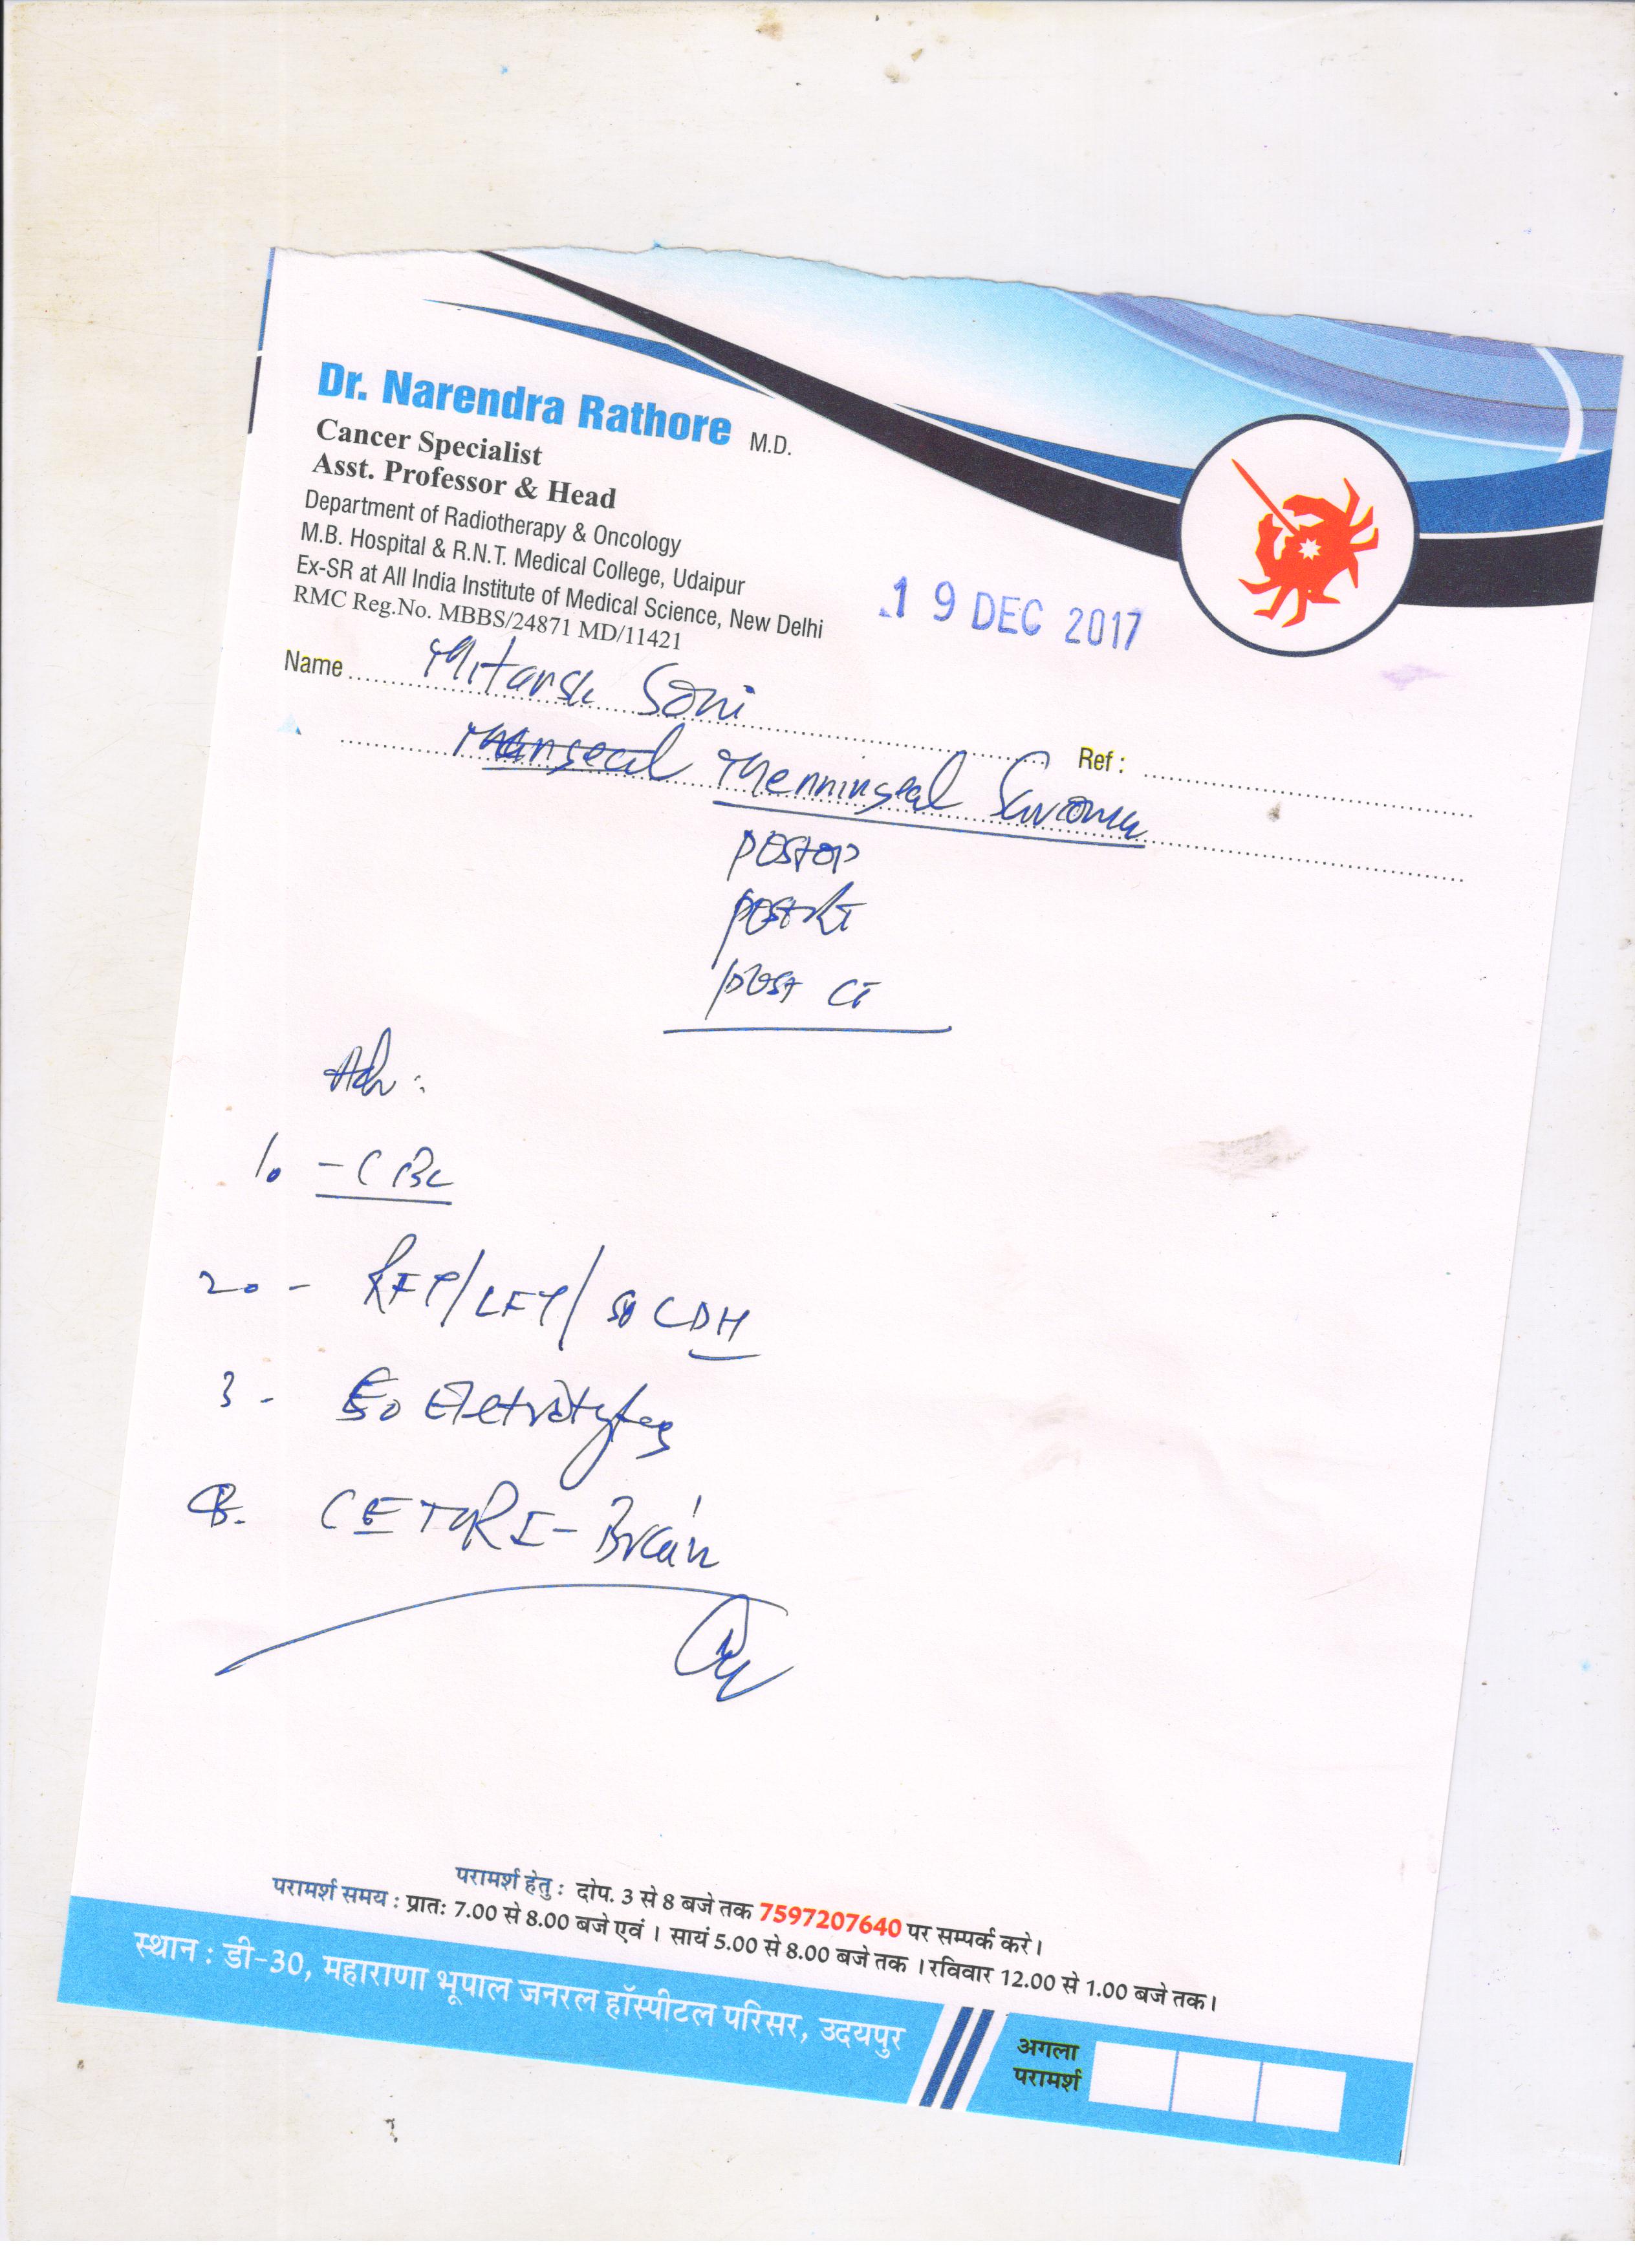 Dr. Narendra Rathore M.D.
Cancer Specialist
Asst. Professor & Head
Department of Radiotherapy & Oncology
M.B. Hospital & R.N.T. Medical College, Udaipur
Ex-SR at All India Institute of Medical Science, New Delhi
RMC Reg.No. MBBS/24871 MD/11421
19 DEC 2017
Name Mitansh Soni
Ref :
Menningeal Sarcoma
postop
post RT
post CT
Adv :
1. - CBC
2. - RFT/LFT/ LDH
3 - Eletrolytes
CEMRI - Brain
परामर्श हेतु : दोप. 3 से 8 बजे तक 7597207640 पर सम्पर्क करे।
परामर्श समय : प्रातः 7.00 से 8.00 बजे एवं । सायं 5.00 से 8.00 बजे तक । रविवार 12.00 से 1.00 बजे तक।
स्थान : डी-30, महाराणा भूपाल जनरल हॉस्पीटल परिसर, उदयपुर
अगला
परामर्श